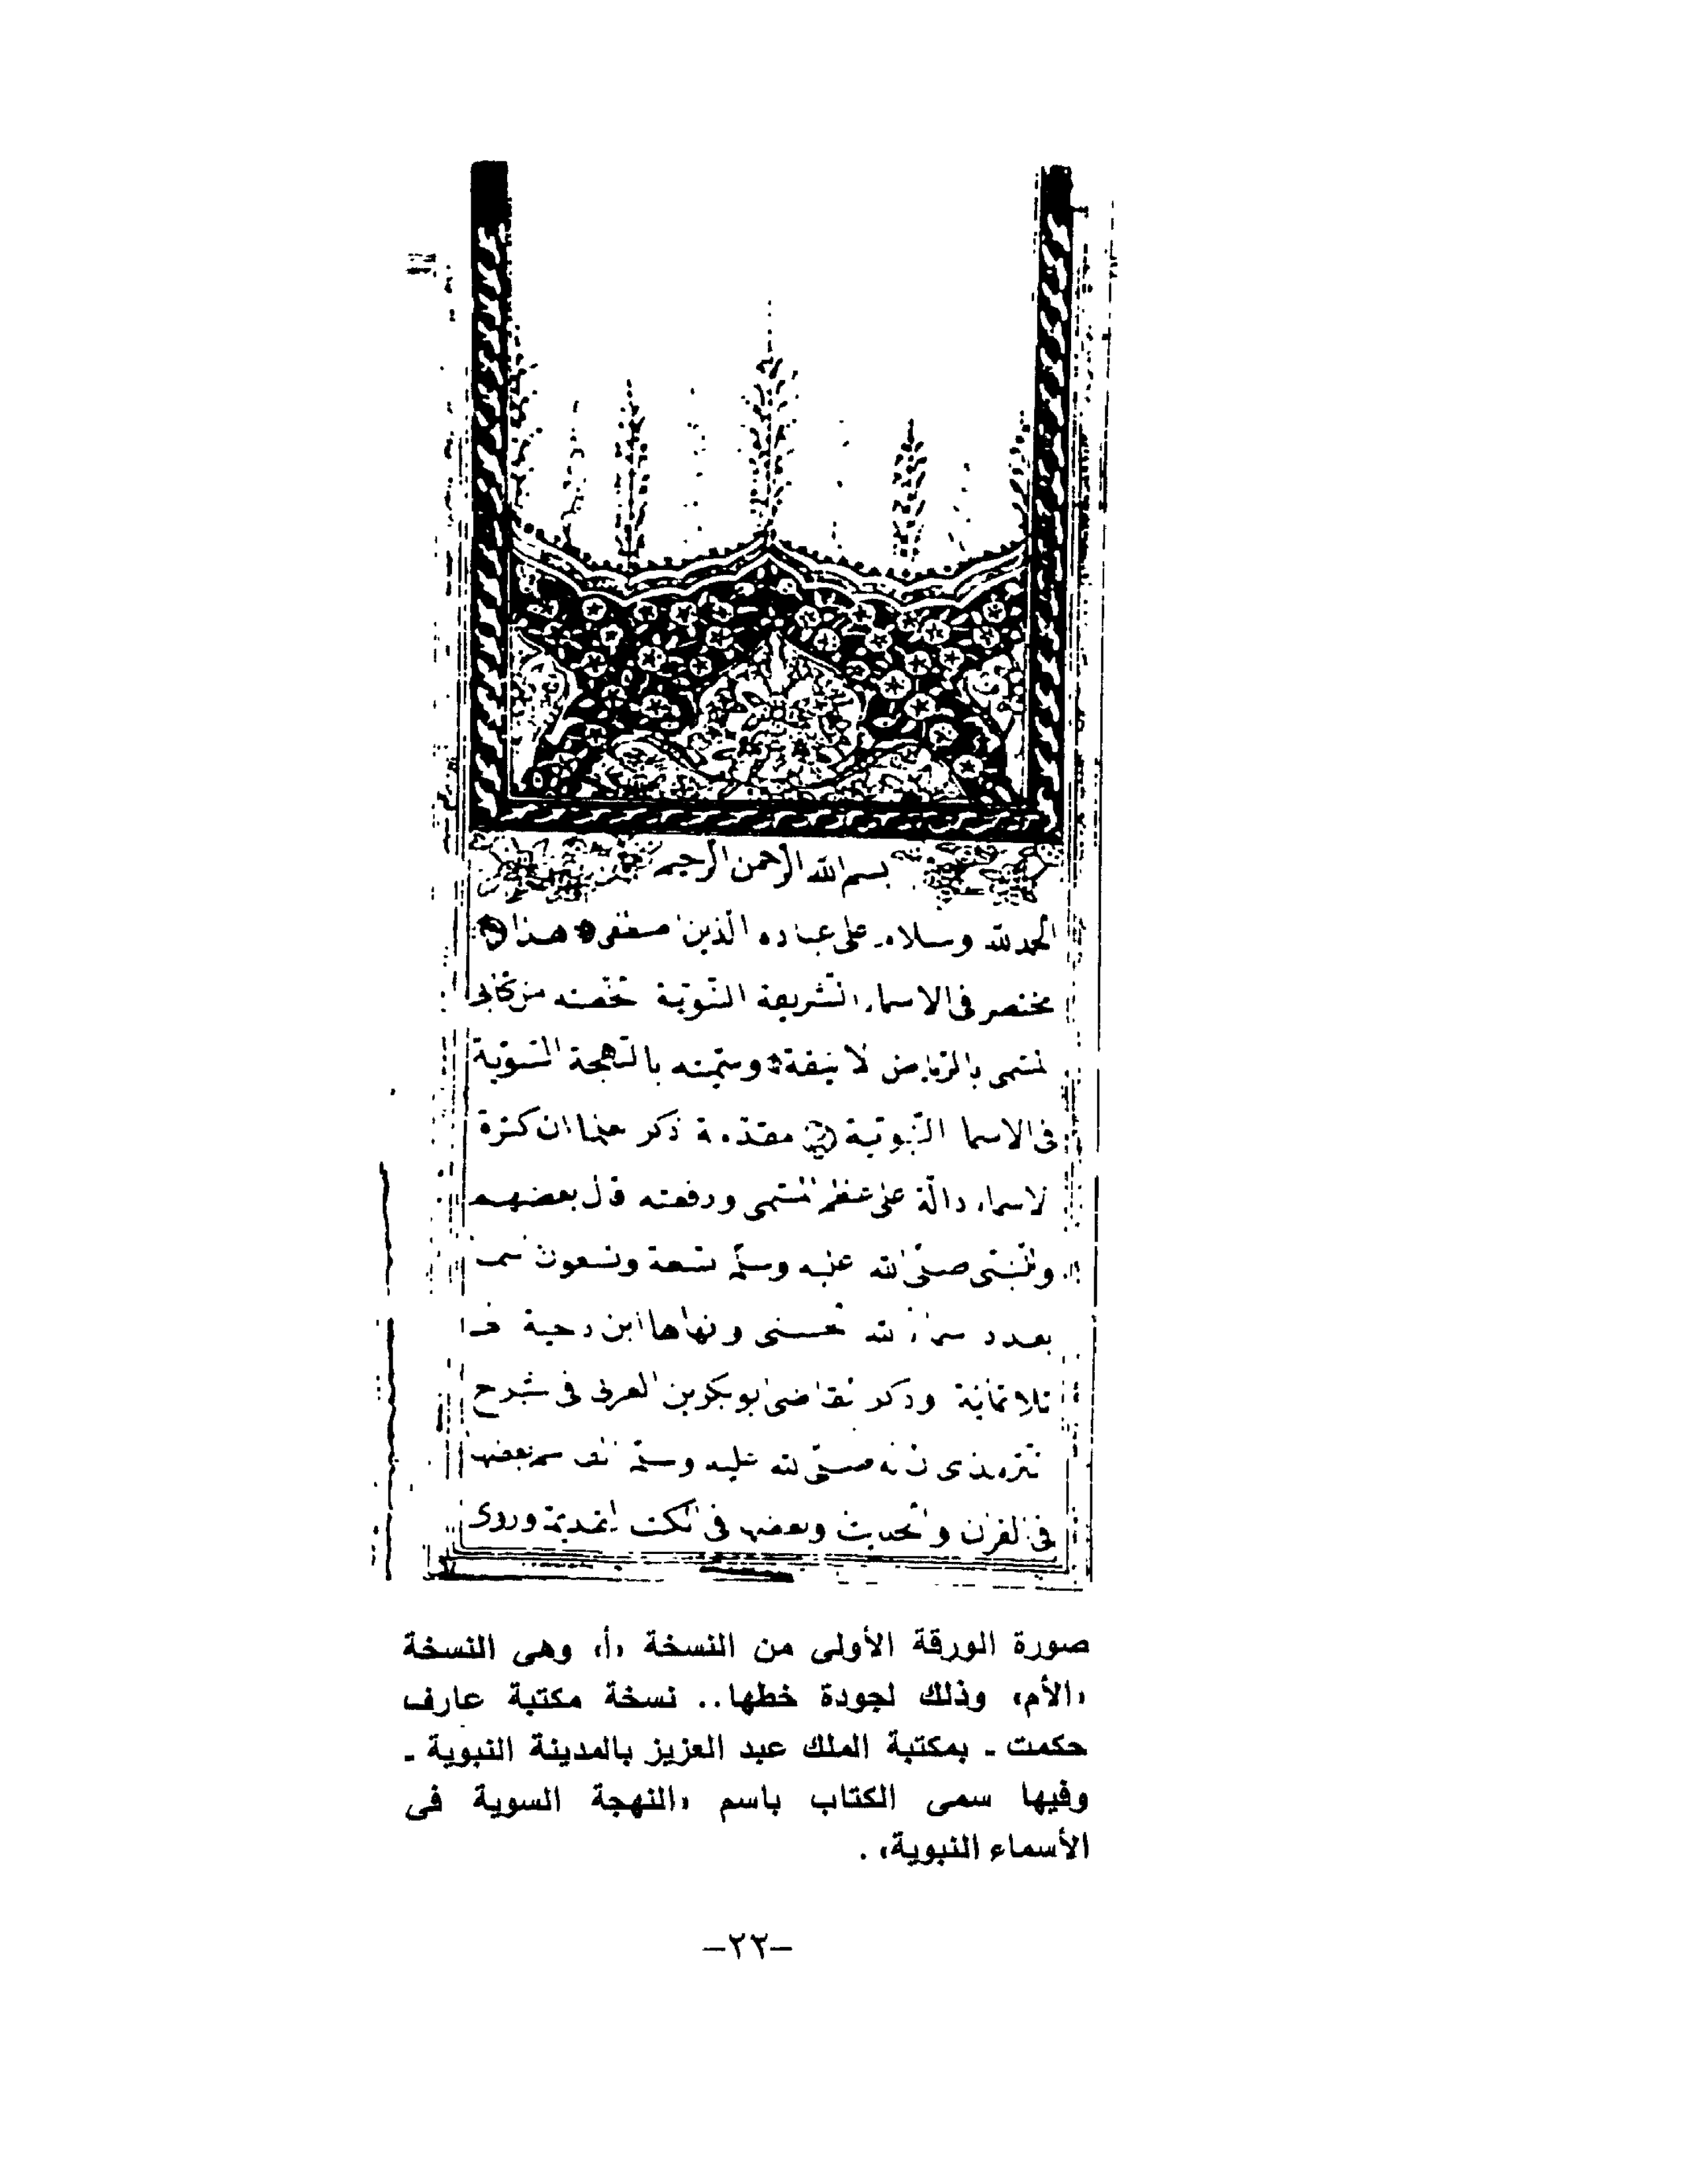 بسم الله الرحمن الرحيم
الحمد لله وسلام على عباده الذين اصطفى هذا
مختصر فى الاسماء الشريفة النبوية لخصته من كتابى
المسمى بالرياض الانيقة وسميته بالنهجة السوية
فى الاسما النبوية مقدمة ذكر علما ان كثرة
الاسماء دالة على عظم المسمى ورفعته قال بعضهم
وللنبى صلى الله عليه وسلم تسعة وتسعون اسما
بعدد اسماء الله الحسنى وانهاها ابن دحية
ثلاثمائة وذكر القاضى ابو بكر بن العربى فى شرح
الترمذى ان له صلى الله عليه وسلم الف اسم بعضها
فى القران والحديث وبعضها فى الكتب القديمة وروى
صورة الورقة الأولى من النسخة «أ» وهى النسخة
«الأم» وذلك لجودة خطها.. نسخة مكتبة عارف
حكمت ـ بمكتبة الملك عبد العزيز بالمدينة النبوية ـ
وفيها سمى الكتاب باسم «النهجة السوية فى
الأسماء النبوية» .
–٢٢–